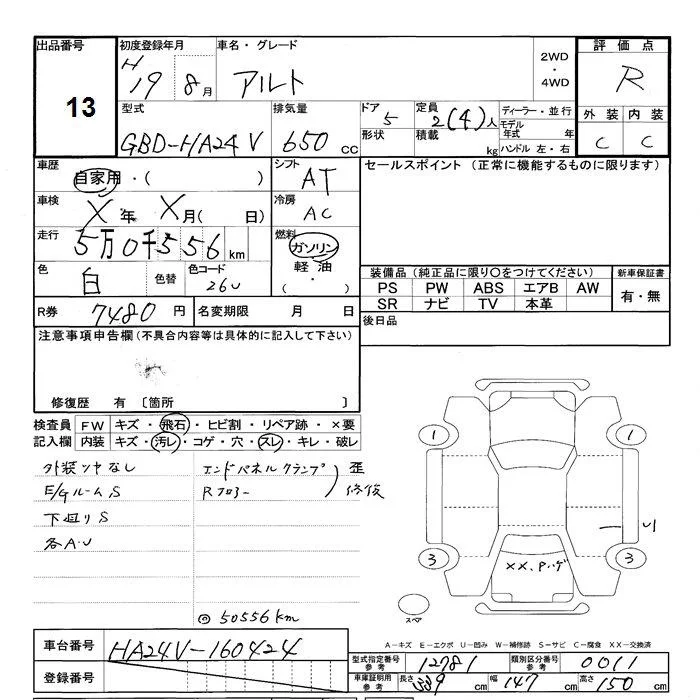 出品番号 13
初度登録年月 H 19 8月
車名・グレード アルト
2WD ・ 4WD
評価点 R
型式 GBD-HA24V
排気量 650 cc
ドア 5
形状
定員 2(4)人
積載 kg
ディーラー・並行
モデル年式 年
ハンドル 左・右
外装 C 内装 C
車歴 自家用・( )
シフト AT
セールスポイント (正常に機能するものに限ります)
車検 X年 X月( 日)
冷房 AC
走行 5万0千556km
燃料 ガソリン
軽油
( ・ )
色 白 色替 色コード 26U
装備品 (純正品に限り〇をつけてください)
新車保証書
PS PW ABS エアB AW
有・無
SR ナビ TV 本革
R券 7480円
名変期限 月 日
後日品
注意事項申告欄(不具合内容等は具体的に記入して下さい)
修復歴 有 〔箇所 〕
検査員 FW キズ・飛石・ヒビ割・リペア跡・×要
記入欄 内装 キズ・汚レ・コゲ・穴・スレ・キレ・破レ
外装ツヤなし
E/GルームS
下廻りS
各A.U
エンドパネルクランプ
Rフロアー
歪
修復
◎50556km
1 1
3 3
XX、Pハゲ
スペア
A-キズ E-エクボ U-凹み W-補修跡 S-サビ C-腐食 XX-交換済
車台番号 HA24V-160424
登録番号
型式指定番号 参考 12781
類別区分番号 参考 0011
車庫証明用 参考 長さ 339cm 幅 147cm 高さ 150cm